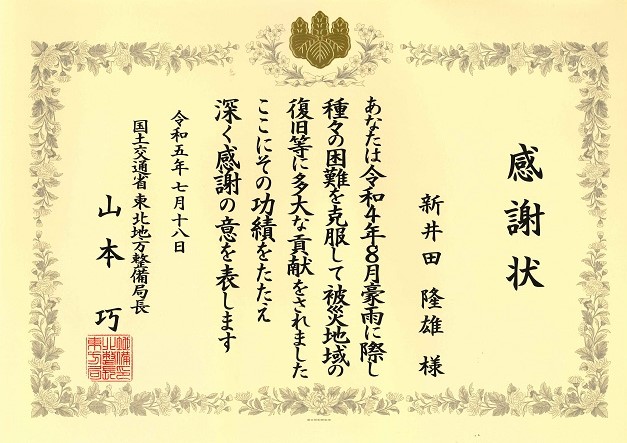 感謝状
新井田 隆雄 様
あなたは令和4年8月豪雨に際し
種々の困難を克服して被災地域の
復旧等に多大な貢献をされました
ここにその功績をたたえ
深く感謝の意を表します
令和五年七月十八日
国土交通省 東北地方整備局長
山本 巧